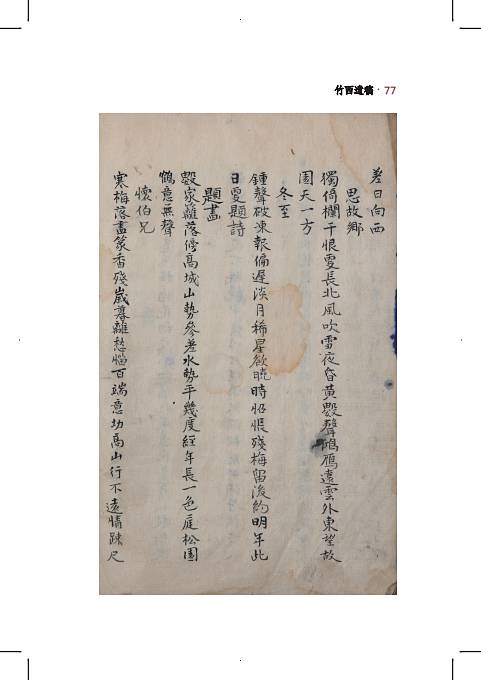 竹西遺稿·77
差日向西
思故鄉
獨倚欄干恨更長北風吹雪夜昏黃數聲鴻鴈遠雲外東望故
園天一方
冬至
鍾聲破凍報偏遲淡月稀星欲曉時怊悵殘梅留後約明年此
日更題詩
題畫
數家籬落傍高城山勢參差水勢平幾度經年長一色庭松園
鶴意無聲
懷伯兄
寒梅落盡篆香殘歲暮離愁惱百端意切高山行不遠情踈尺